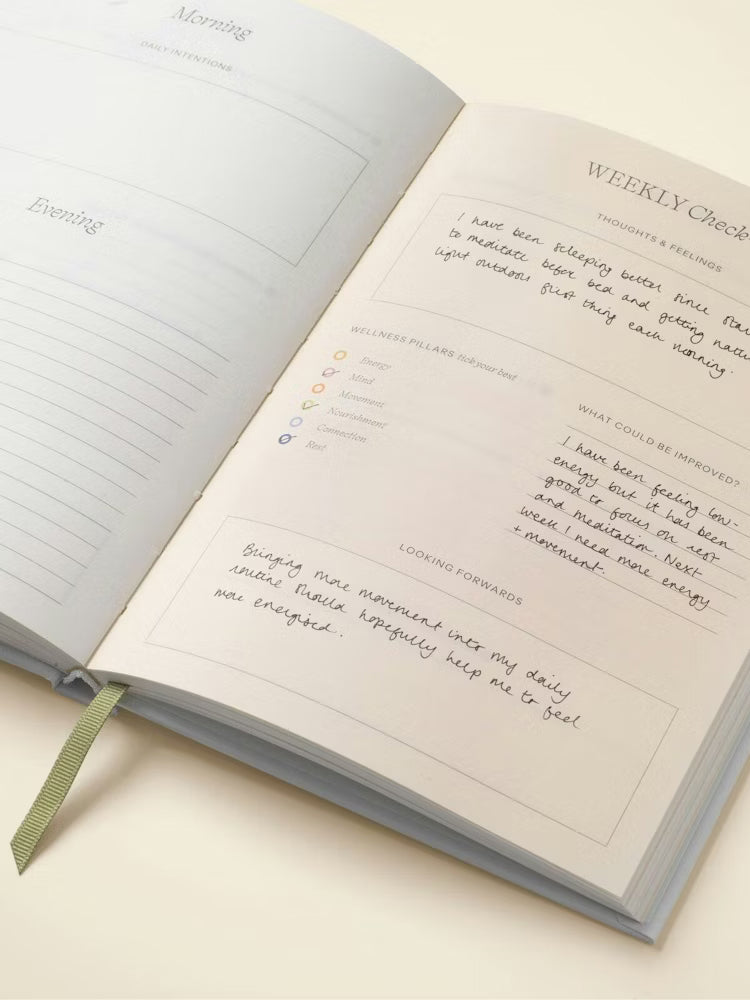 Morning
DAILY INTENTIONS
Evening
WEEKLY Check
THOUGHTS & FEELINGS
I have been sleeping better since star
to meditate before bed and getting natu
light outdoors first thing each morning.
WELLNESS PILLARS tick your best
Energy
Mind
Movement
Nourishment
Connection
Rest
WHAT COULD BE IMPROVED?
I have been feeling low-
energy but it has been
good to focus on rest
and meditation. Next
week I need more energy
+ movement.
LOOKING FORWARDS
Bringing more movement into my daily
routine should hopefully help me to feel
more energised.